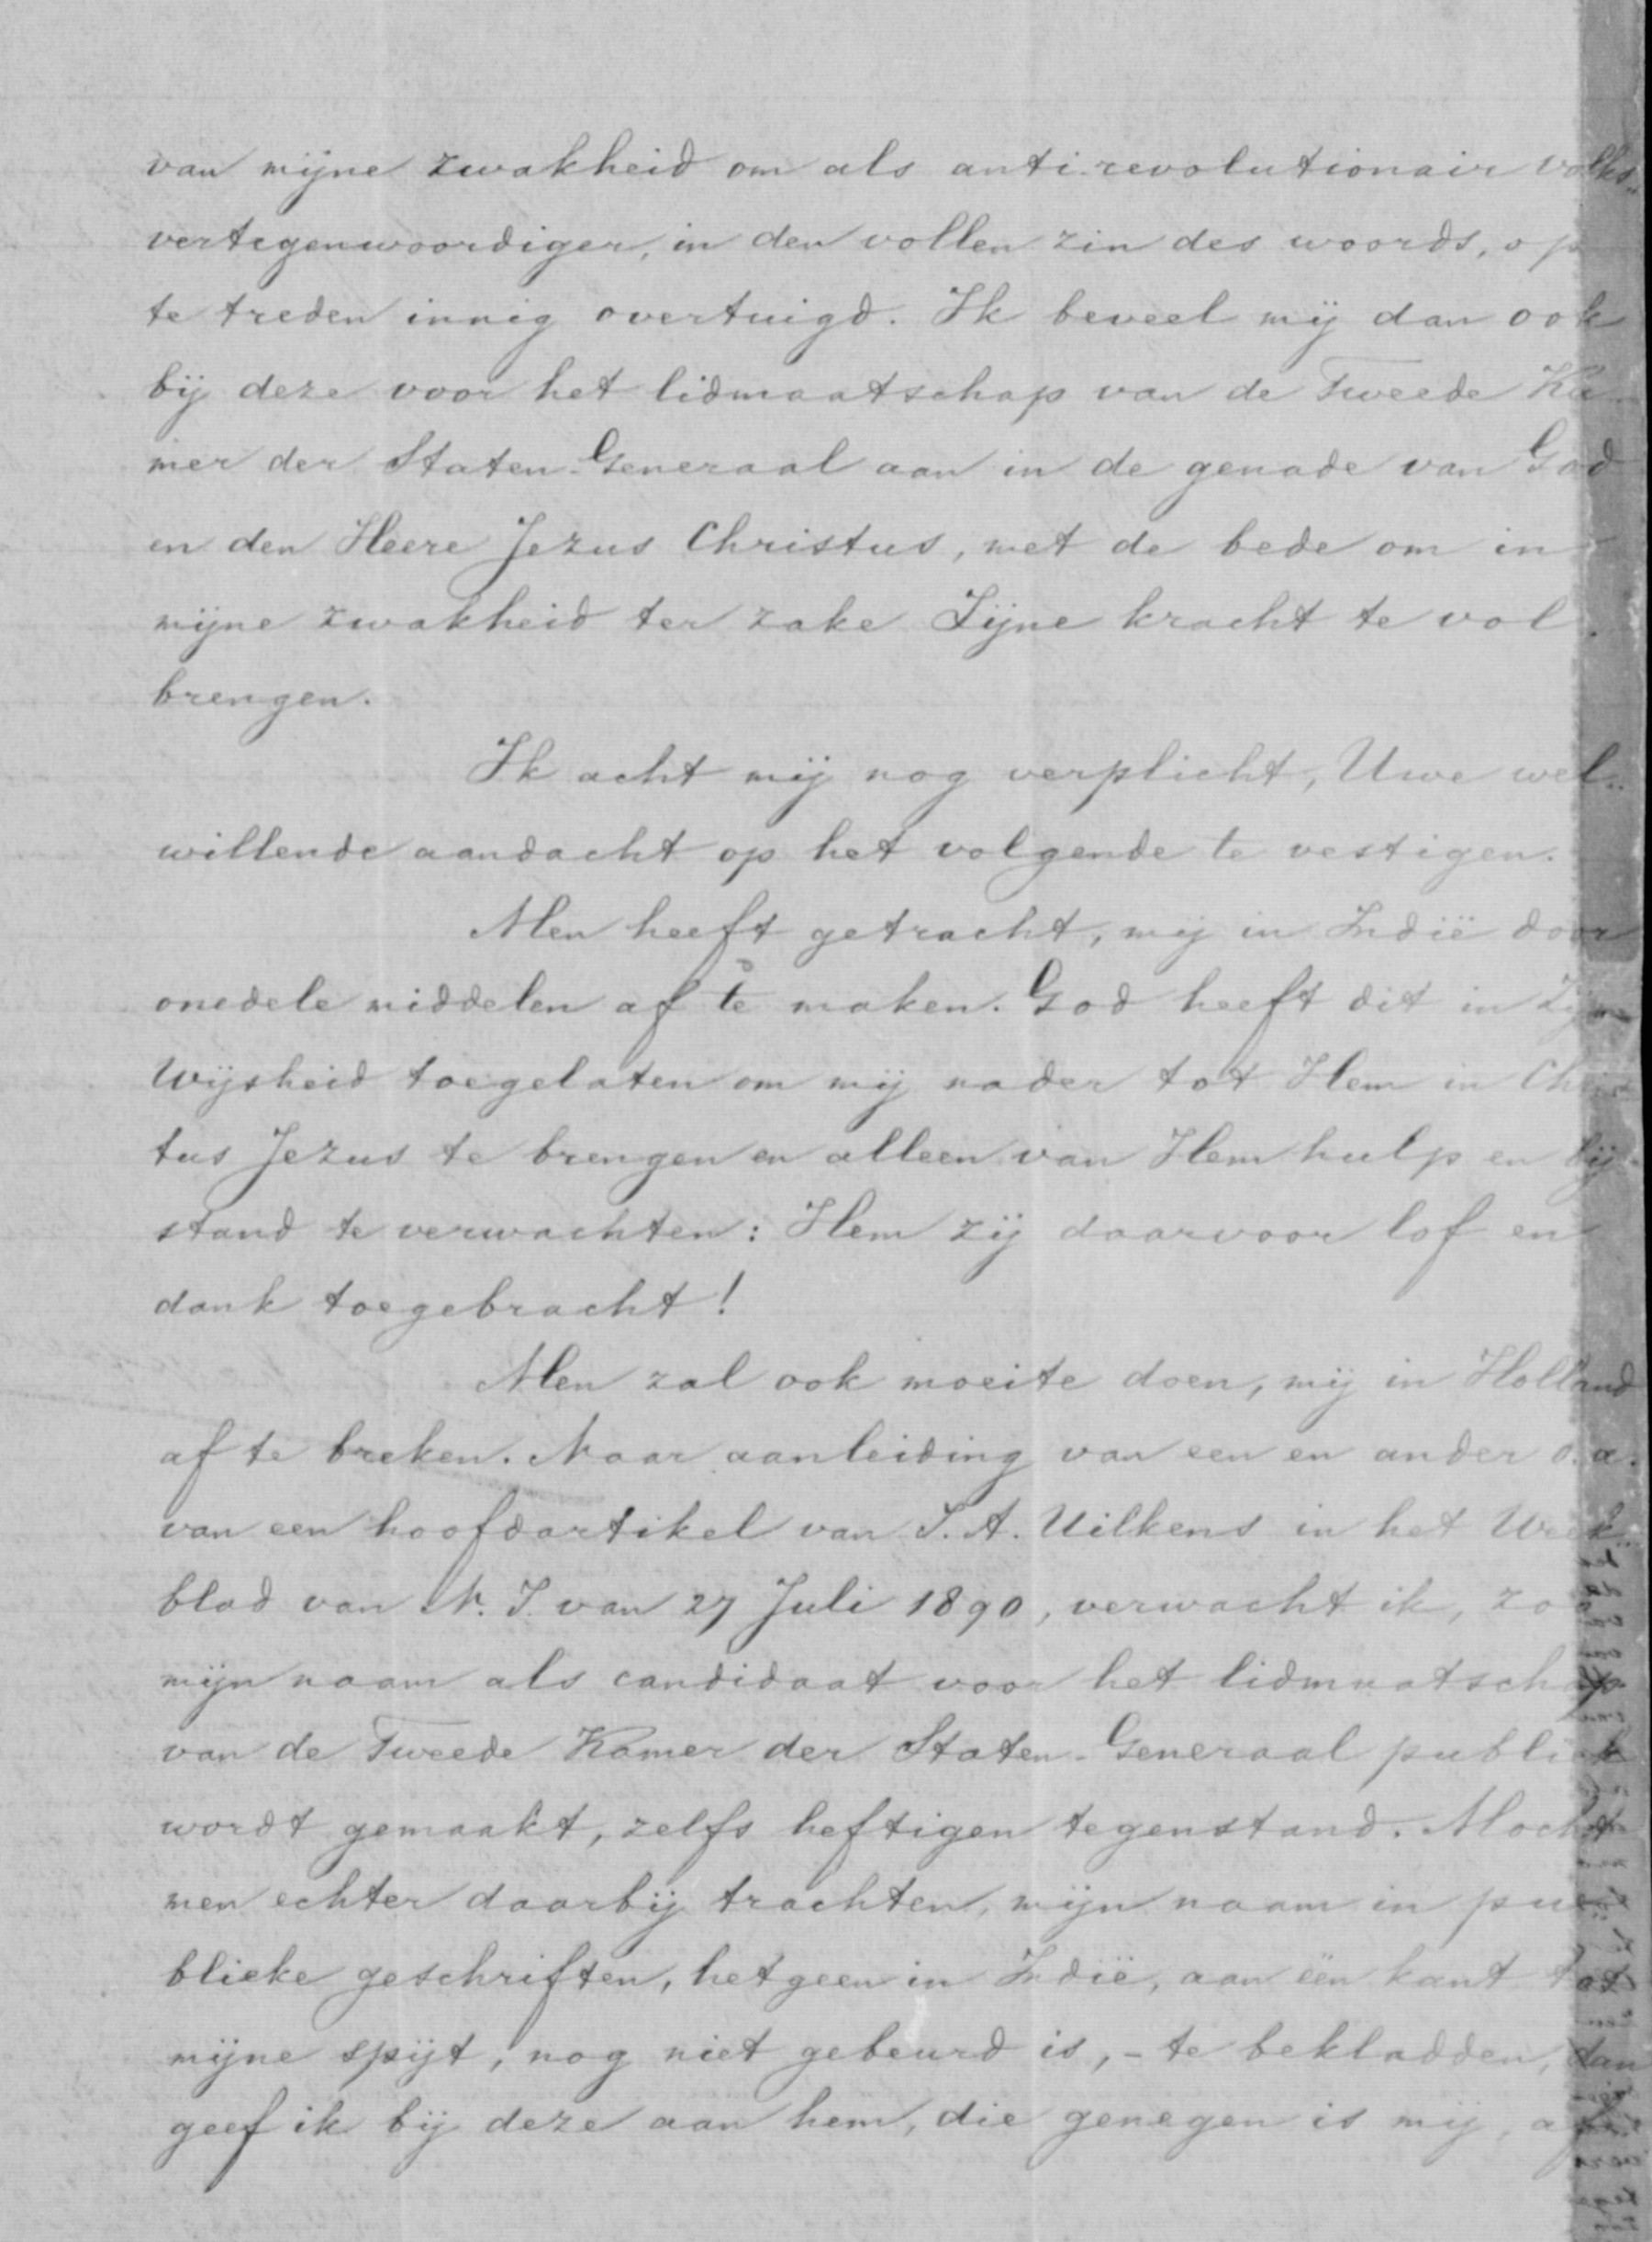 van mijne zwakheid om als anti-revolutionair volks-
vertegenwoordiger, in den vollen zin des woords, op
te treden innig overtuigd. Ik beveel mij dan ook
bij deze voor het lidmaatschap van de Tweede Ka-
mer der Staten-Generaal aan in de genade van God
en den Heere Jezus Christus, met de bede om in
mijne zwakheid ter zake Zijne kracht te vol-
brengen.
Ik acht mij nog verplicht, Uwe wel-
willende aandacht op het volgende te vestigen.
Men heeft getracht, mij in Indië door
onedele middelen af te maken. God heeft dit in Zijne
Wijsheid toegelaten om mij nader tot Hem in Chris-
tus Jezus te brengen en alleen van Hem hulp en bij-
stand te verwachten: Hem zij daarvoor lof en
dank toegebracht!
Men zal ook moeite doen, mij in Holland
af te breken. Naar aanleiding van een en ander o.a.
van een hoofdartikel van J. A. Uilkens in het Week-
blad van N. I. van 27 Juli 1890, verwacht ik, zoo
mijn naam als candidaat voor het lidmaatschap
van de Tweede Kamer der Staten-Generaal publiek
wordt gemaakt, zelfs heftigen tegenstand. Mocht
men echter daarbij trachten, mijn naam in pu-
blieke geschriften, hetgeen in Indië, aan één kant tot
mijne spijt, nog niet gebeurd is, - te bekladden, dan
geef ik bij deze aan hem, die genegen is mij,